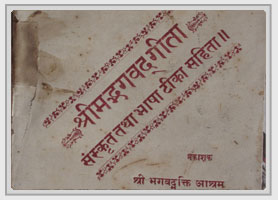 श्रीमद्भगवद्गीता
संस्कृत तथा भाषा टीका सहिता॥
प्रकाशक
श्री भगवद्भक्ति आश्रम